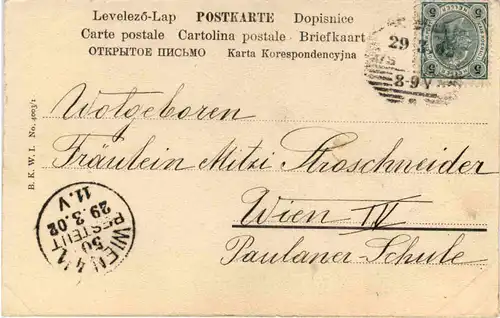 Levelező-Lap POSTKARTE Dopisnice
Carte postale Cartolina postale Briefkaart
ОТКРЫТОЕ ПИСЬМО Karta Korespondencyjna
29
8-9V
5 5
Wolgeboren
Fräulein Mitzi Stroschneider
Wien IV
Paulaner-Schule
B. K. W. I. No. 4003/1
WIEN 4/1
50
BESTELLT
29.3.02
11.V